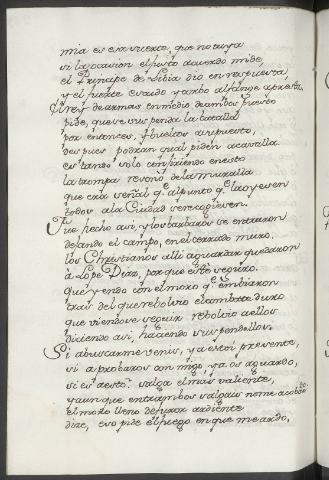 mia es esa suerte, que no tuya
si la ocasion el justo acuerdo mide,
el Principe de Libia dio en respuesta,
y el fuerte escudo y ancho alfange apresta.
Un rey de armas en medio de ambos puesto
pide, que se suspenda la batalla
por entonces, y bueltos a su puesto,
despues podran qual piden acavalla.
estando solo confiriendo en esto
la trompa resonò de la muralla
que era señal q̃ al punto q̃ la oyesen
todos a la Ciudad se recogiesen.
Fue hecho asi, y los barbaros se entraron
dejando el campo, en el cerrado muro.
los Christianos alli aguardar quedaron
à Lope Diaz, porque esté seguro.
que yendo con el moro q̃ embiaron
tras del que rebolvio el combate duro
que viendose seguir rebolvio a ellos
diciendo asi, haciendo suspendellos.
Si a buscarme venis, ya estoi presente,
si a probaros con migo, ya os aguardo,
si es a esto salga el mas valiente,
y aunque entrambos salgais no me acobardo.
el moro lleno de furor ardiente
dize, eso pide el fuego en que me ardo,